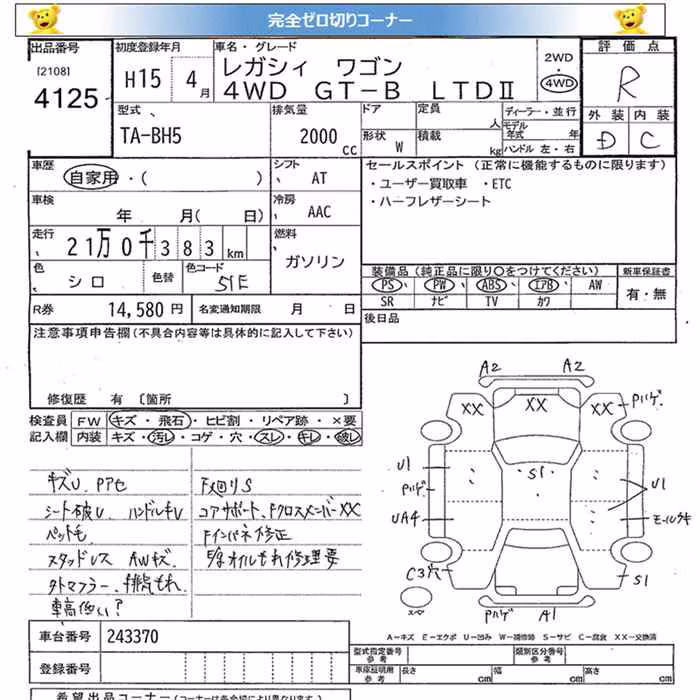 完全ゼロ切りコーナー
出品番号
[2108]
4125
初度登録年月
H15 4月
車名・グレード
レガシィ ワゴン
4WD GT-B LTDⅡ
2WD
・
4WD
評価点
R
外装 内装
D C
型式
TA-BH5
排気量
2000 cc
ドア
形状 W
定員
人
積載
kg
ディーラー・並行
モデル年式 年
ハンドル 左・右
車歴
自家用・( )
シフト
AT
車検
年 月( 日)
冷房
AAC
走行
21万0千383km
燃料
ガソリン
色
シロ
色替
色コード
51E
R券 14,580円
名変通知期限 月 日
セールスポイント (正常に機能するものに限ります)
・ユーザー買取車 ・ETC
・ハーフレザーシート
装備品(純正品に限り〇をつけてください)
PS PW ABS エアB AW
SR ナビ TV カワ
新車保証書
有・無
後日品
注意事項申告欄(不具合内容等は具体的に記入して下さい)
修復歴 有〔箇所 〕
検査員記入欄
FW キズ・飛石・ヒビ割・リペア跡・×要
内装 キズ・汚レ・コゲ・穴・スレ・キレ・破レ
キズU. Pアセ
シート破U. ハンドルキU
ペット毛
スタッドレス AWキズ
タトマフラー、排気もれ.
車高低い?
F廻りS
コアサポート、FクロスメンバーXX
Fインパネ修正
E/gオイルもれ修理要
A2 A2
XX XX XX Pハゲ.
U1 S1 U1
Pハゲ
UA4
C3穴 S1
スペア
Pハゲ A1
A-キズ E-エクボ U-凹み W-補修跡 S-サビ C-腐食 XX-交換済
車台番号 243370
登録番号
型式指定番号
参考
類別区分番号
参考
車庫証明用
参考
長さ cm 幅 cm 高さ cm
希望出品コーナー